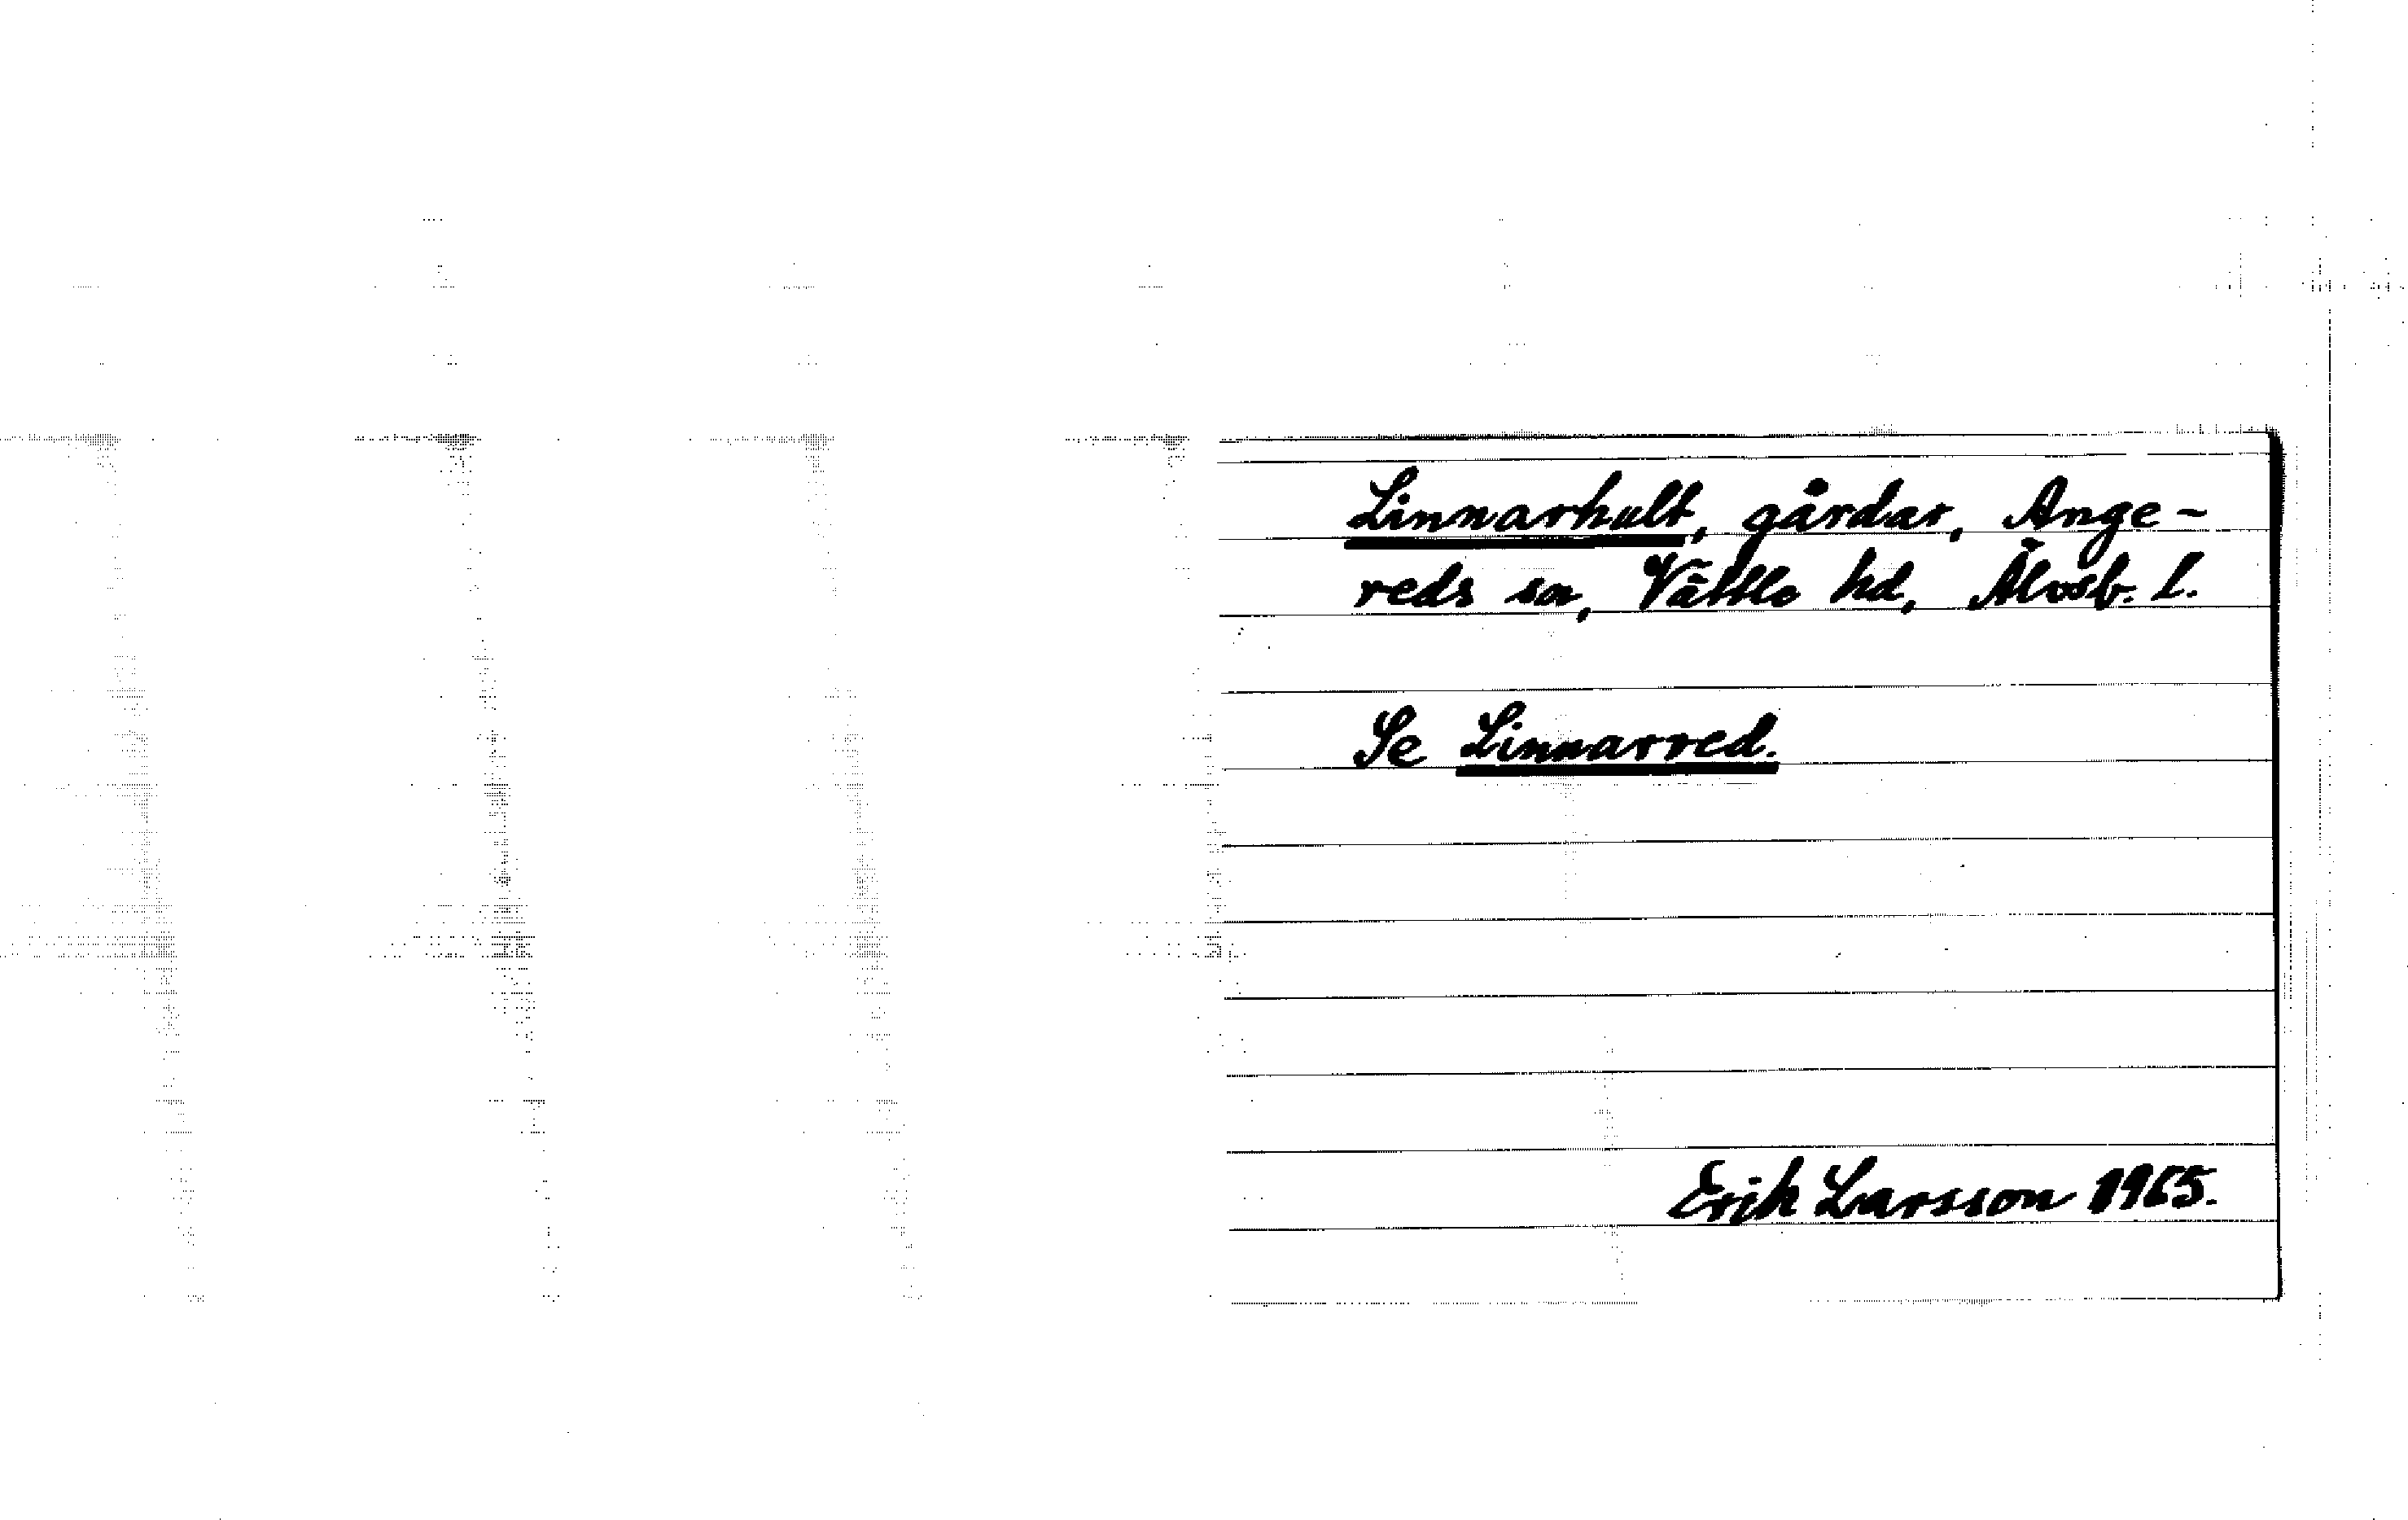 Linnarhult, gårdar, Ange-
reds sn, Vättle hd, Älvsb. l.
Se Linnarred.
Erik Larsson 1965.